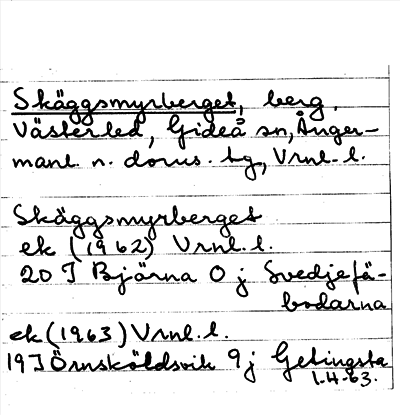 Skäggsmyrberget, berg,
Västerled, Gideå sn, Ånger-
manl. n. doms. tg, Vrnl. l.
Skäggsmyrberget
ek (1962) Vrnl. l.
20 I Björna 0 j Svedjefä-
bodarna
ek (1963) Vrnl. l.
19 I Örnsköldsvik 9 j Getingsta
1.4.63.